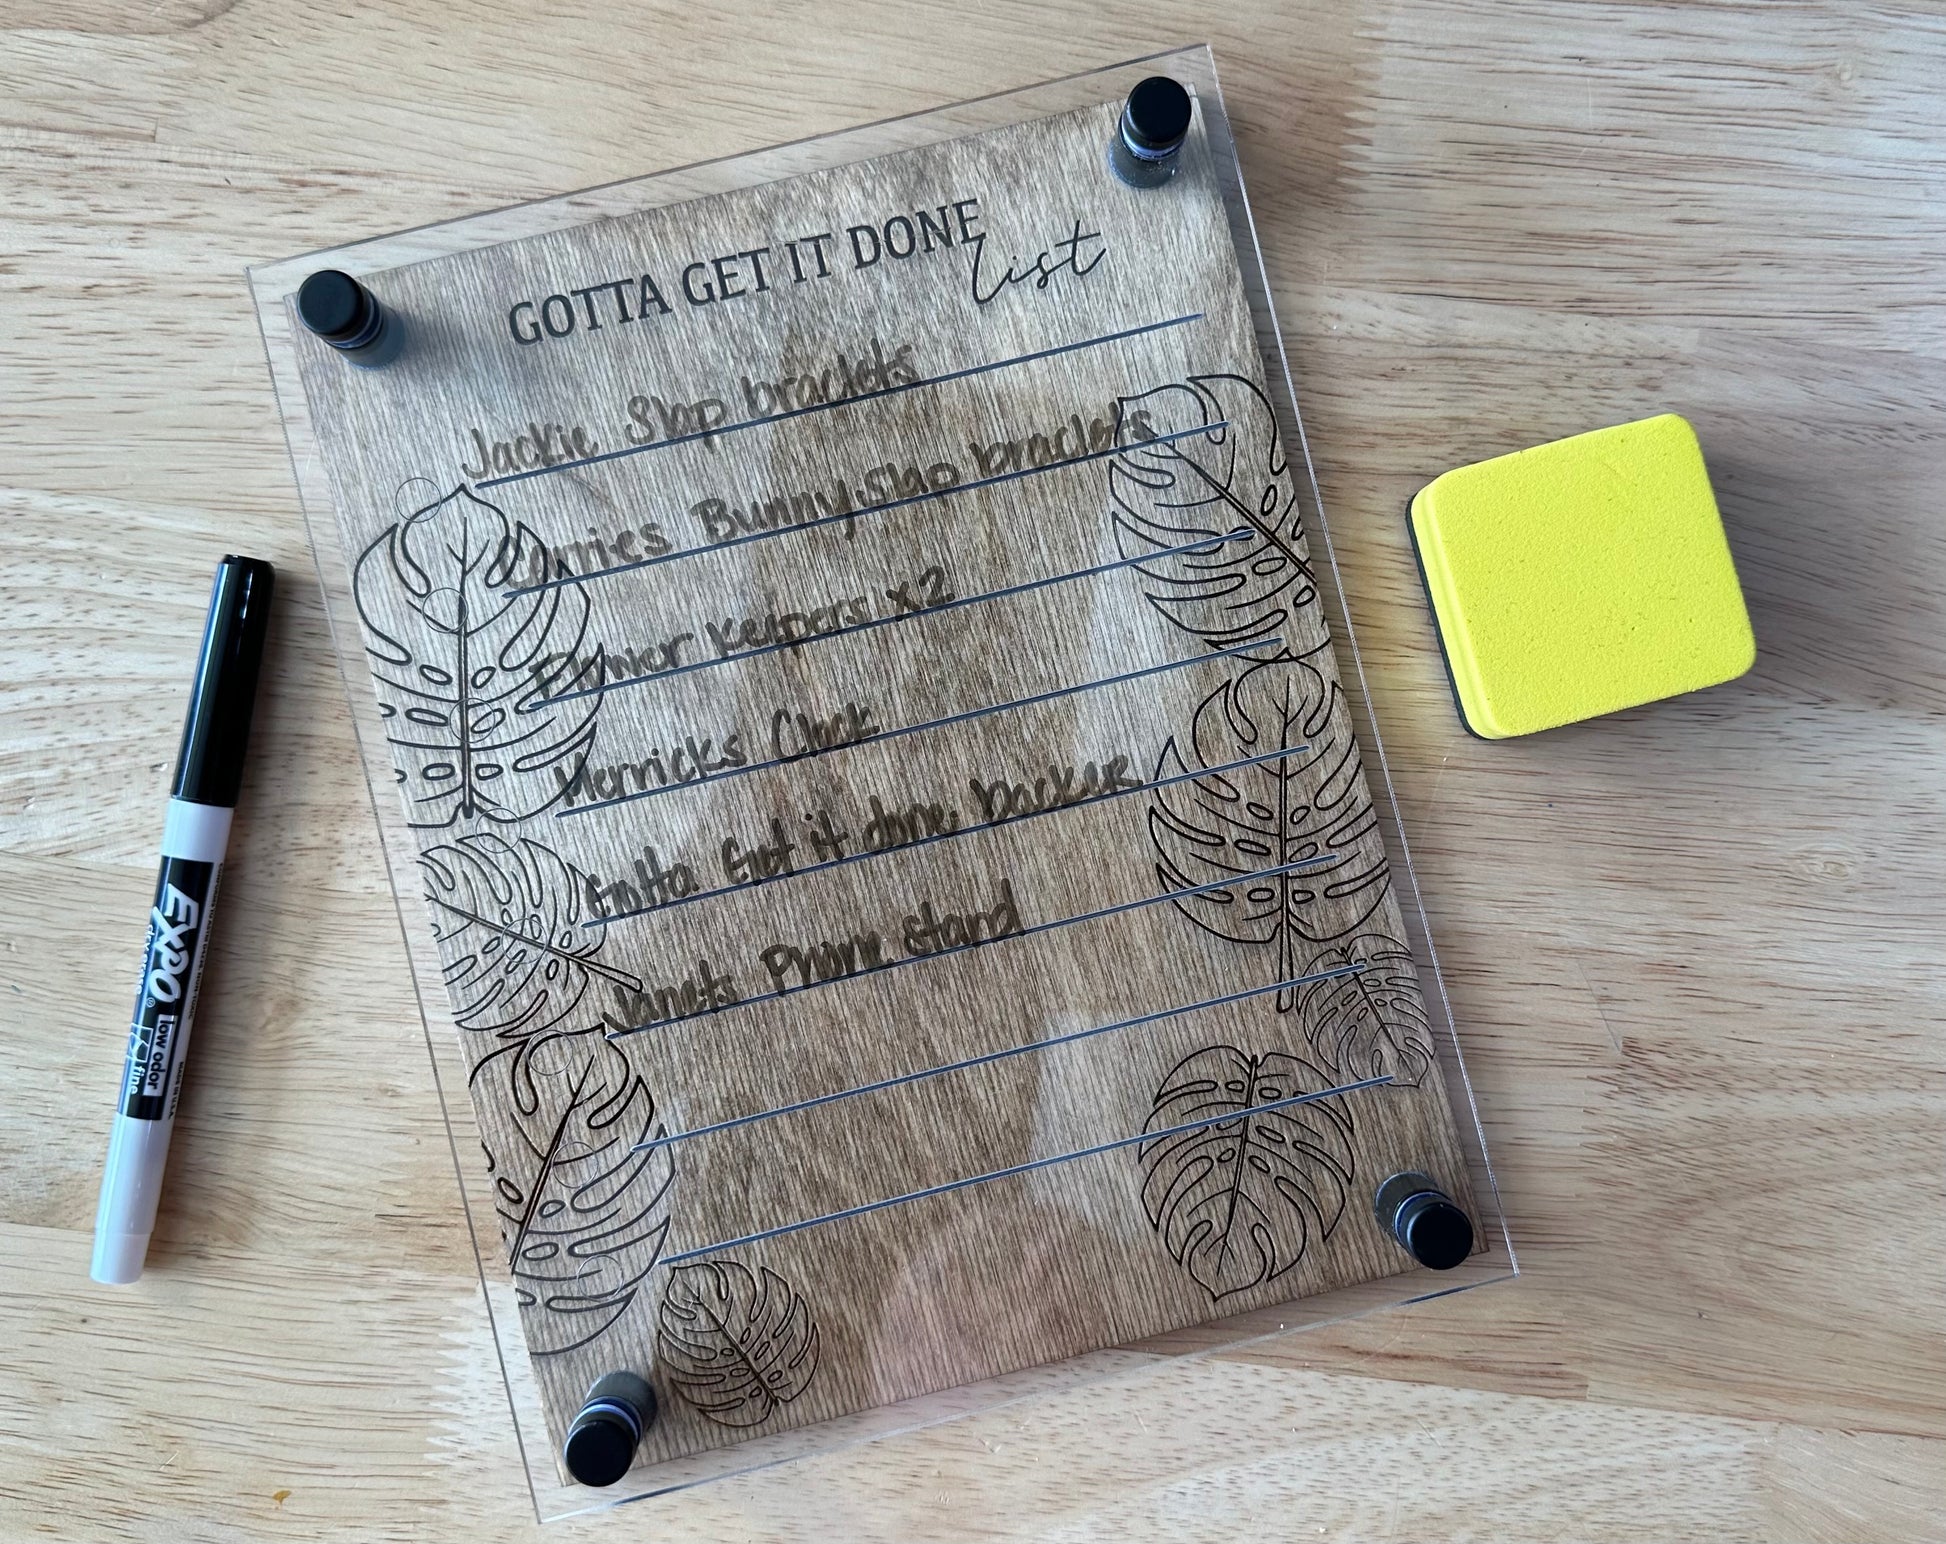 GOTTA GET IT DONE
list
Jackie Slap braclets
Corries Bunny Slap braclets
Keepers x2
Merricks Clock
Gotta Get it done. backer
Janets Phone stand
EXPO®
dry erase
low odor
fine